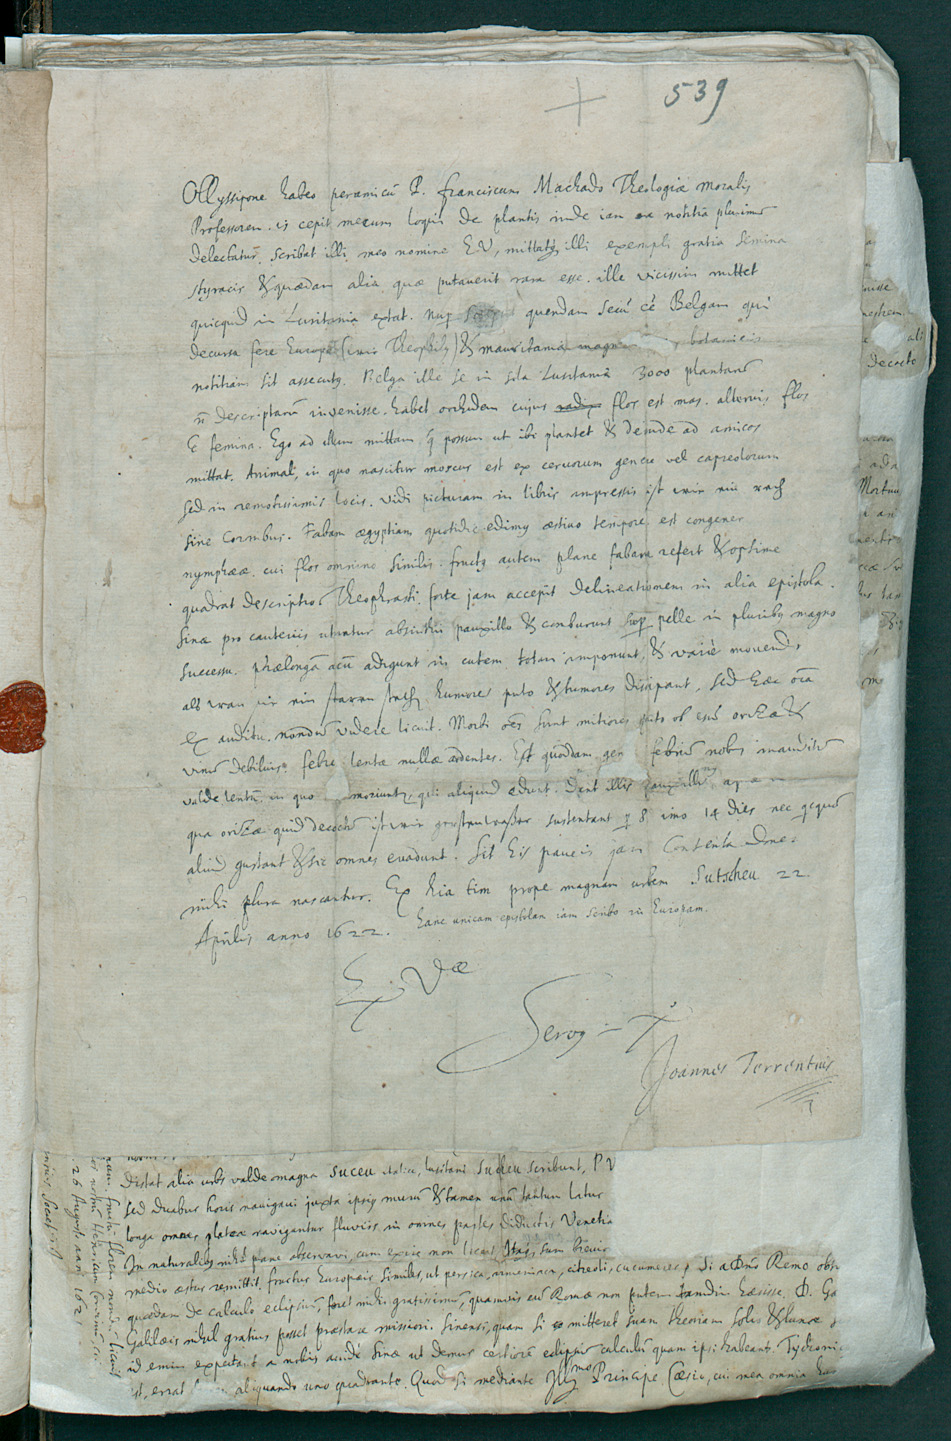 539
Ollyssipone habeo peramicū P. Franciscum Machado Theologiæ moralis
Professorem. is cepit mecum loqui de plantis unde iam ea notitia plurimū
delectatur. scribat illi meo nomine E.V, mittatq illi exempli gratia semina
styracis & quædam alia quæ putaverit rara esse. ille vicissim mittet
quicquid in Lusitania extat. nup quendam secū cē Belgam qui
decursa fere Europa (uir Theophily) & mauritania magn botanicis
notitiam sit assecuty. Belga ille se in sola Lusitania 3000 plantarū
n descriptarū invenisse. habet orchidem cujus radix flos est mas. alterius flos
E femina. Ego ad illum mittam q possum ut ibi plantet & deinde ad amicos
mittat. Animal, in quo nascitur moscus est ex cervorum genere vel capreolorum
sed in remotissimis locis. vidi picturam in libris impressis ist wie ein rech
sine cornibus. Fabam ægyptiam quotidie edimy æstivo tempore. est congener
nymphææ. cui flos omnino similis. fructy autem plane fabam refert & optime
quadrat descriptio Theophrasti. forte jam accepit delineationem in alia epistola.
Sinæ pro cauteriis utuntur absinthii pauxillo & comburunt sup pelle in pluriby magno
successu. prælongā acū adigunt in cutem totam imponunt, & varie movendo
humores puto & tumores dissipant, sed hæc oīa
ex auditu. nondū videre licuit. Morbi oēs sunt mitiores puto ob esū orizæ &
vinū debilius. febres lentæ nullæ ardentes. Est quoddam gen febriū nobis inauditū
valde lentū. in quo moriuntur, qui aliquid edunt. Dant illis pauxillū aquæ in
qua orizæ quid decoctū ist wie gerstenwasser sustentant p 8 imo 14 dies nec quicquā
aliud gustant & sic omnes evadunt. Sit his paucis jam contenta done
mihi plura nascantur. Ex hia tim prope magnam urbem Sutscheu 22
Aprilis anno 1622. hanc unicam epistolam iam scribo in Europam.
E. Væ
Servy in X
Joannes Terrentius
Distat alia urbs valde magna suceu italice, lusitani sucheu scribunt, P V
sed duabus horis navigavi juxta ipsiy murū & tamen unū tantum latus
longa omnes plateæ navigantur fluviis in omnes partes diductis Venetia
In naturaliby nihil pæne observavi, cum exire non liceat,
medio æstus remittit. fructus Europæis similes, ut persica, armeniaca, citreoli, cucumeres, Si a Dno Remo obti
quoddam de calculo eclipsiū, foret mihi gratissimū, quamvis eū Romæ non putem tamdiu hæsisse, D. Ga
Galilæis nihil gratius posset præstare missioni sinensi, quam si mitteret suam theoriam solis & lunæ
id enim expectant a nobis avide Sinæ ut demus certiorē eclipsiū calculū quam ipsi habeant. Tychonic
it, errat aliquando uno quadrante. Quod si mediante Illmo Principe Cæsio, cui mea omnia
26 Augusti anni 1621